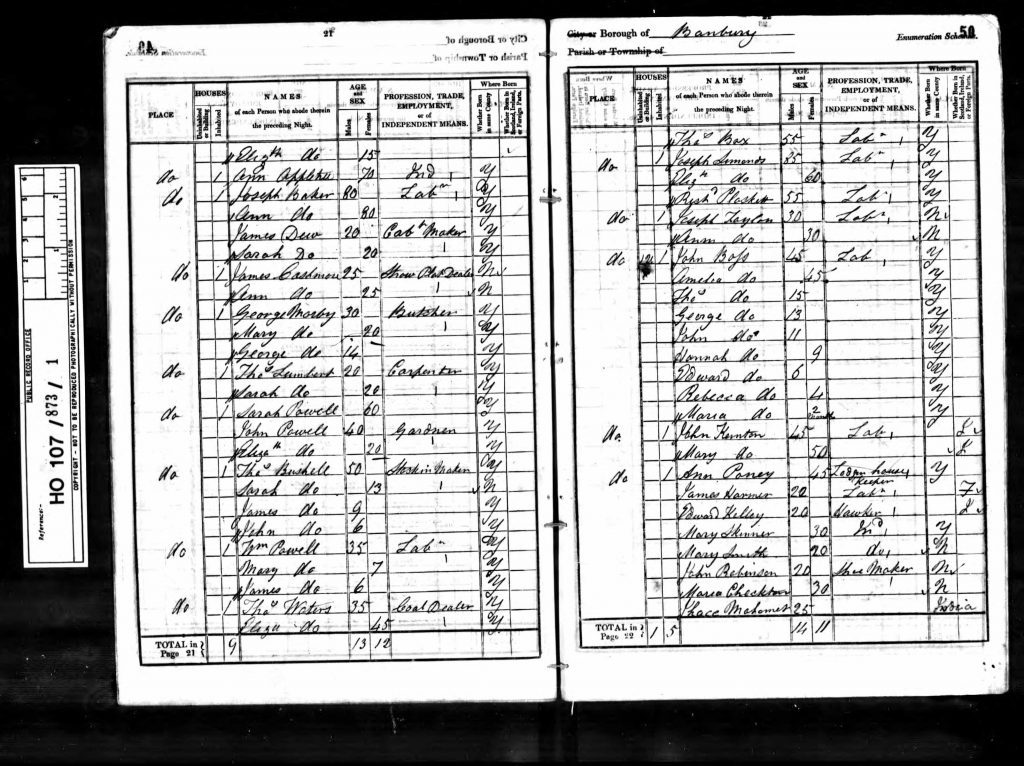 PUBLIC RECORD OFFICE
Reference:-
HO 107 / 873 / 1
COPYRIGHT - NOT TO BE REPRODUCED PHOTOGRAPHICALLY WITHOUT PERMISSION
12
City or Borough of
Parish or Township of
PLACE
HOUSES
Uninhabited or Building
Inhabited
NAMES
of each Person who abode therein
the preceding Night.
AGE and SEX
Males
Females
PROFESSION, TRADE,
EMPLOYMENT,
or of
INDEPENDENT MEANS.
Where Born
Whether Born in same County
Whether Born in Scotland, Ireland, or Foreign Parts.
Elizth do 15
do 1 Ann 70 Ind Y
do 1 Joseph Baker 80 Labr Y
Ann do 80 Y
James Dew 20 Cabt Maker Y
Sarah Do 20 Y
do 1 James Cashmore 25 Straw Plat Dealer N
Ann do 25 N
do 1 George 30 Butcher Y
Mary do 20 Y
George do 14 Y
do 1 Thos Lumbert 20 Carpenter Y
Sarah do 20 Y
do 1 Sarah Powell 60 Y
John Powell 40 Gardner Y
Elizth do 20 Y
do 1 Thos Bushell 50 Maker Y
Sarah do 13 N
James do 9 Y
John do 6 Y
do 1 Wm Powell 35 Labr Y
Mary do 7 Y
James do 6 Y
do 1 Thos Waters 35 Coal Dealer Y
Eliza do 45 Y
TOTAL in Page 21 9 13 12
City or Borough of Banbury
Parish or Township of
50
Enumeration Schedule.
PLACE
HOUSES
Uninhabited or Building
Inhabited
NAMES
of each Person who abode therein
the preceding Night.
AGE and SEX
Males
Females
PROFESSION, TRADE,
EMPLOYMENT,
or of
INDEPENDENT MEANS.
Where Born
Whether Born in same County
Whether Born in Scotland, Ireland, or Foreign Parts.
Thos Box 55 Labr Y
do 1 Joseph Simonds 85 Labr Y
Elizth do 60 Y
Plaskett 55 Labr Y
do 1 Joseph 30 Labr N
Ann do 30 N
do 1 John Boss 45 Lab Y
Amelia do 45 Y
Thos do 15 Y
George do 13 Y
John do 11 Y
Hannah do 9 Y
Edward do 6 Y
Rebecca do 4 Y
Maria do 2 months Y
do 1 John 45 Lab I
Mary do 50 I
do 1 Ann Poney 45 house Keeper Y
James Harmer 20 Labr F
Edward Kelley 20 Hawker I
Mary Skinner 30 Ind Y
Mary Smith 20 do N
John Robinson 20 Shoe Maker N
Maria 30 N
Mahomet 25 India
TOTAL in Page 22 1 5 14 11